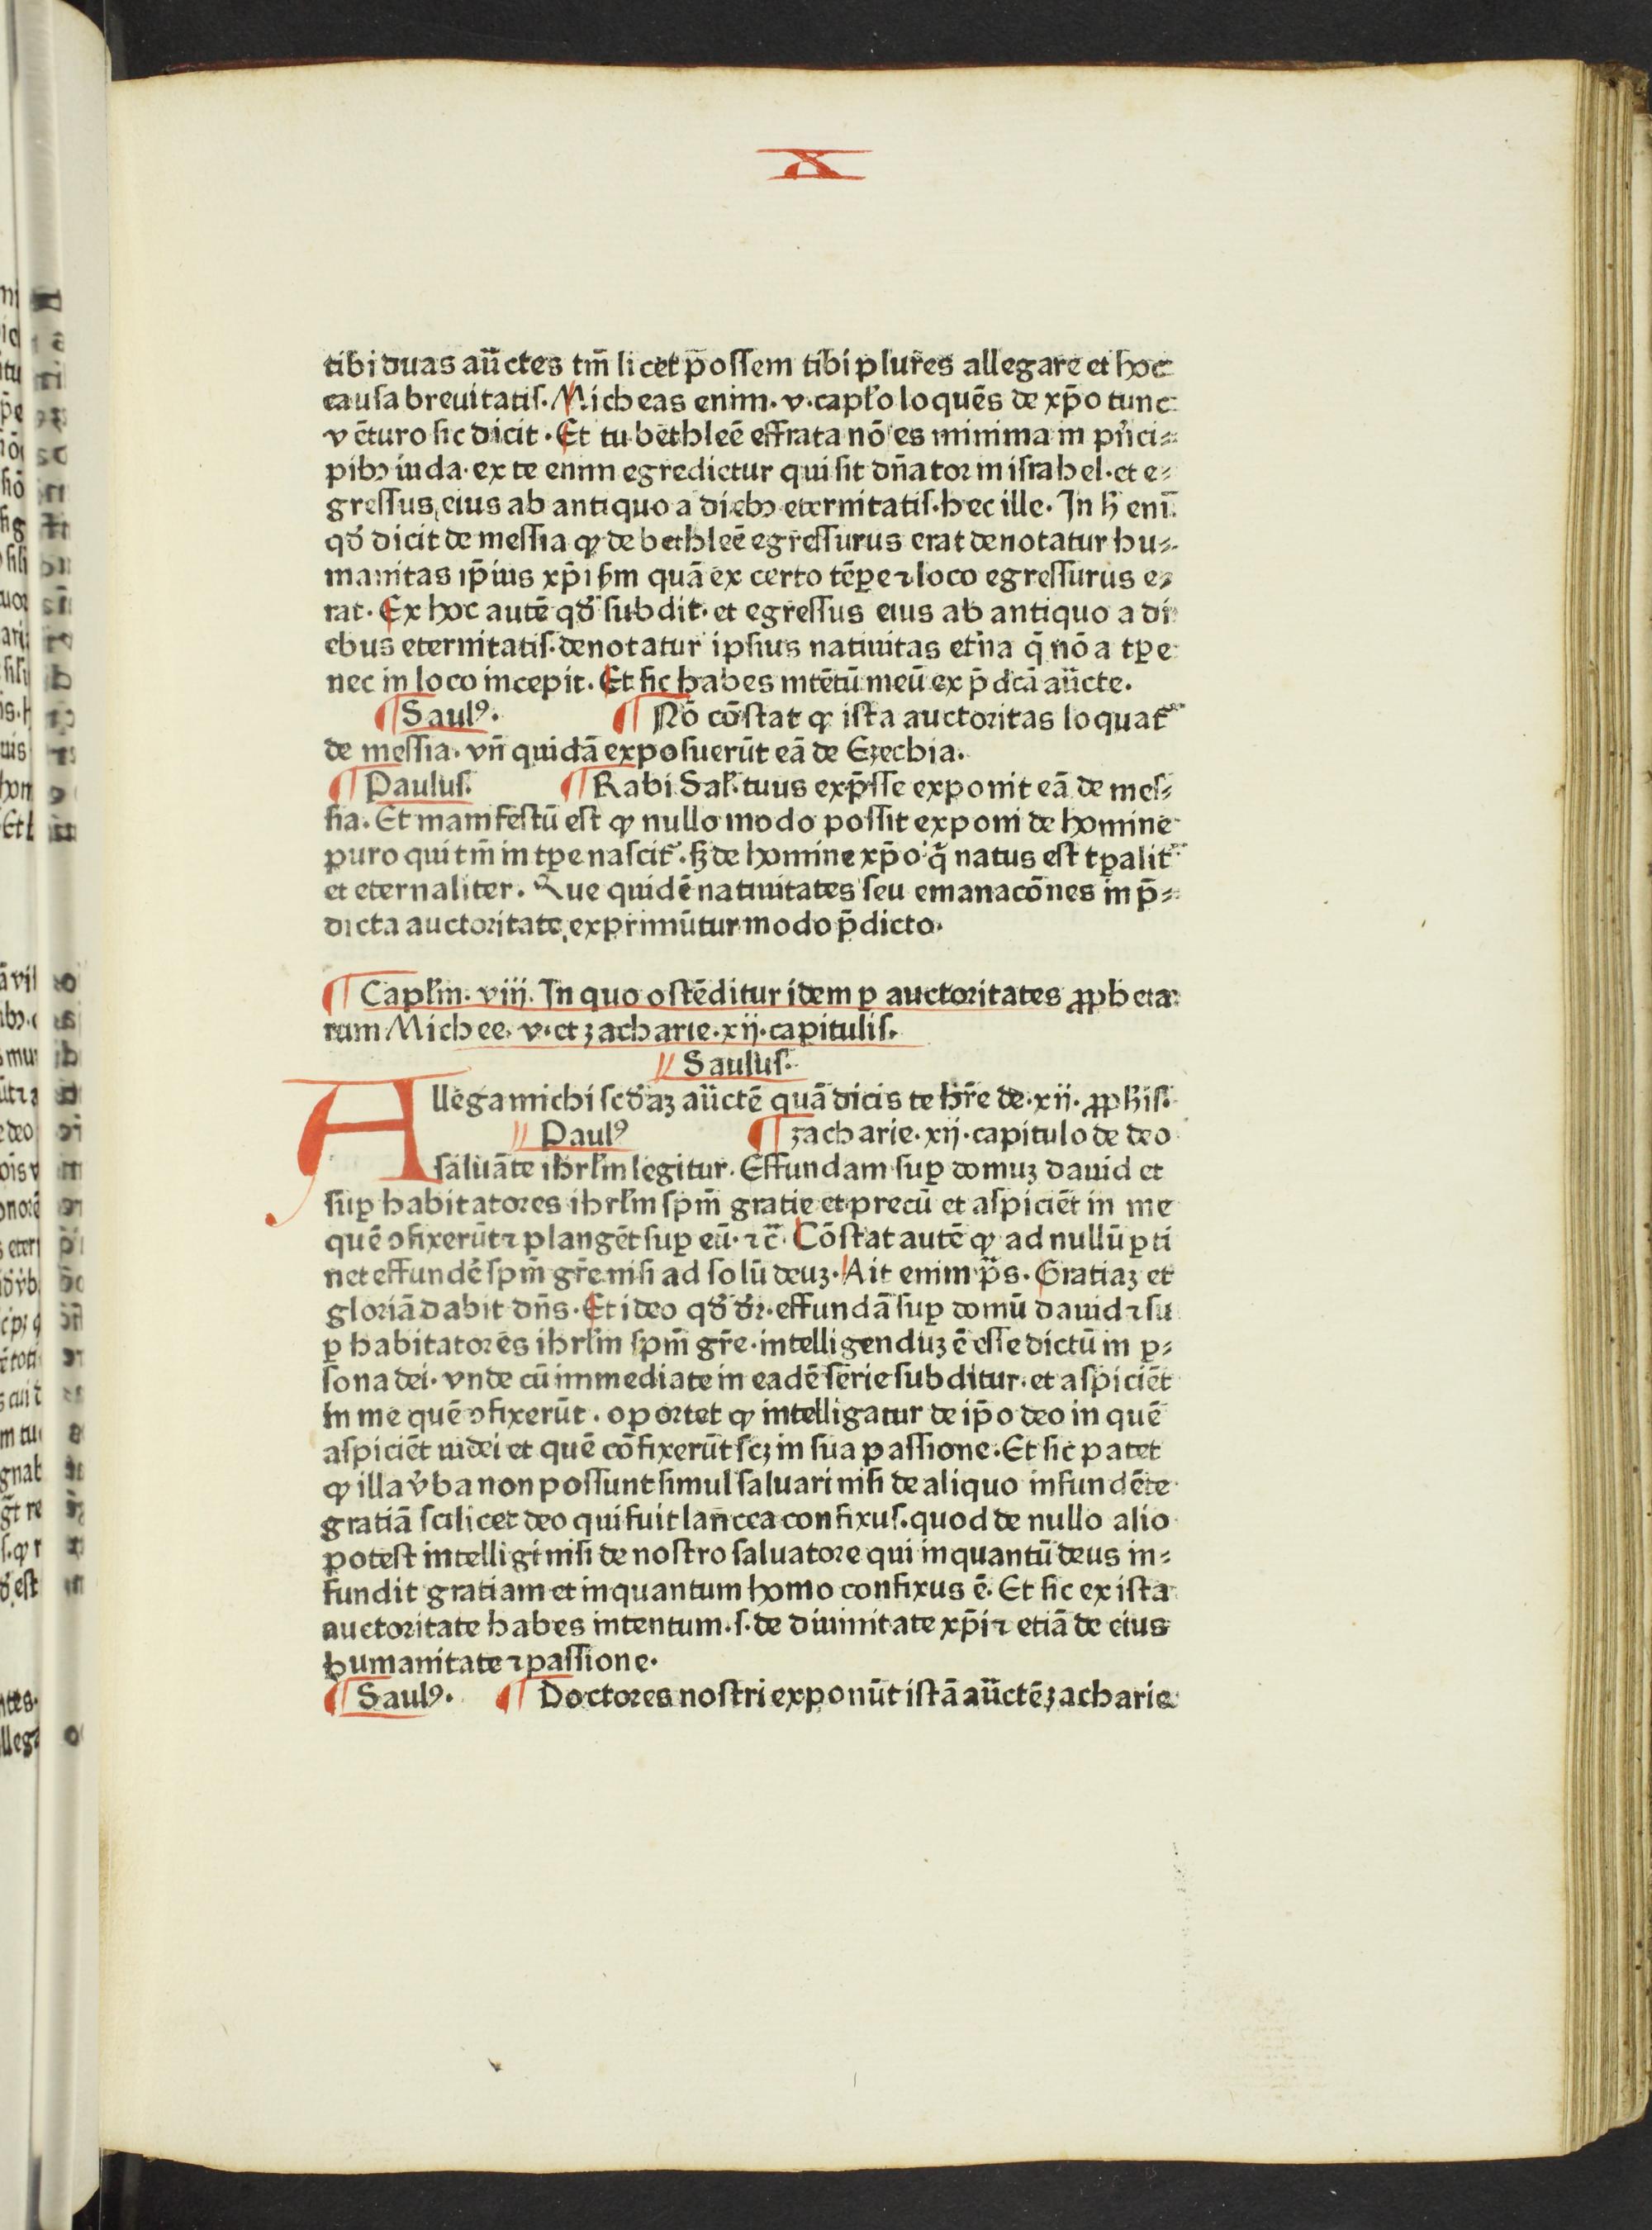 X
tibi duas au̅ctes tm̅ licet possem tibi plures allegare et hoc
causa breuitatis. Micheas enim. v. capl̅o loque̅s de xp̅o tunc
ve̅turo sic dicit. Et tu bethlee̅ effrata no̅ es minima in pn̅ci⸗
pibꝫ iuda. ex te enim egredietur qui sit dn̅ator in israhel. et e⸗
gressus eius ab antiquo a diebꝫ eternitatis. hec ille. In h̅ eni̅
qd̅ dicit de messia ꝙ de bethlee̅ egressurus erat denotatur hu⸗
manitas ip̅ius xp̅i ẜm qua̅ ex certo te̅ꝑe ⁊ loco egressurus e⸗
rat. Ex hoc aute̅ qd̅ subdit. et egressus eius ab antiquo a di
ebus eternitatis. denotatur ipsius natiuitas et̅na q̅ no̅ a tꝑe
nec in loco incepit. Et sic habes inte̅tu̅ meu̅ ex p̅dc̅a au̅cte.
¶ Saulꝯ. ¶ No̅ co̅stat ꝙ ista auctoritas loquat᷑
de messia. vn̅ quida̅ exposueru̅t ea̅ de Ezechia.
¶ Paulus. ¶ Rabi Sal̅. tuus exp̅sse exponit ea̅ de mes⸗
sia. Et manifestu̅ est ꝙ nullo modo possit exponi de homine
puro qui tm̅ in tꝑe nascit᷑. sꝫ de homine xp̅o q̅ natus est tꝑalit᷑
et eternaliter. Que quide̅ natiuitates seu emanaco̅nes in p̅⸗
dicta auctoritate exprimu̅tur modo p̅dicto.
¶ Capl̅m. viij. In quo oste̅ditur idem ꝑ auctoritates ꝓpheta⸗
rum Michee. v. et zacharie. xij. capitulis.
Saulus.
Allega michi scd̅aꝫ au̅cte̅ qua̅ dicis te hr̅e de. xij. ꝓph̅is.
Paulꝯ ¶ zacharie. xij. capitulo de deo
salua̅te ihrl̅m legitur. Effundam suꝑ domuꝫ dauid et
suꝑ habitatores ihrl̅m spm̅ gratie et precu̅ et aspicie̅t in me
que̅ ↄfixeru̅t ⁊ plange̅t suꝑ eu̅. ⁊ c̅. Co̅stat aute̅ ꝙ ad nullu̅ ꝑti
net effunde̅ spm̅ gr̅e nisi ad solu̅ deuꝫ. Ait enim p̅s. Gratiaꝫ et
gloria̅ dabit dn̅s. Et ideo qd̅ dr̅. effunda̅ suꝑ domu̅ dauid ⁊ su
ꝑ habitatores ihrl̅m spm̅ gr̅e. intelligenduꝫ e̅ esse dictu̅ in ꝑ⸗
sona dei. vnde cu̅ immediate in eade̅ serie subditur. et aspicie̅t
in me que̅ ↄfixeru̅t. oportet ꝙ intelligatur de ip̅o deo in que̅
aspicie̅t iudei et que̅ co̅fixeru̅t scꝫ in sua passione. Et sic patet
ꝙ illa v̅ba non possunt simul saluari nisi de aliquo infunde̅te
gratia̅ scilicet deo qui fuit lan̅cea confixus. quod de nullo alio
potest intelligi nisi de nostro saluatore qui inquantu̅ deus in⸗
fundit gratiam et inquantum homo confixus e̅. Et sic ex ista
auctoritate habes intentum. s. de diuinitate xp̅i ⁊ etia̅ de eius
humanitate ⁊ passione.
¶ Saulꝯ. ¶ Doctores nostri exponu̅t ista̅ au̅cte̅ zacharie